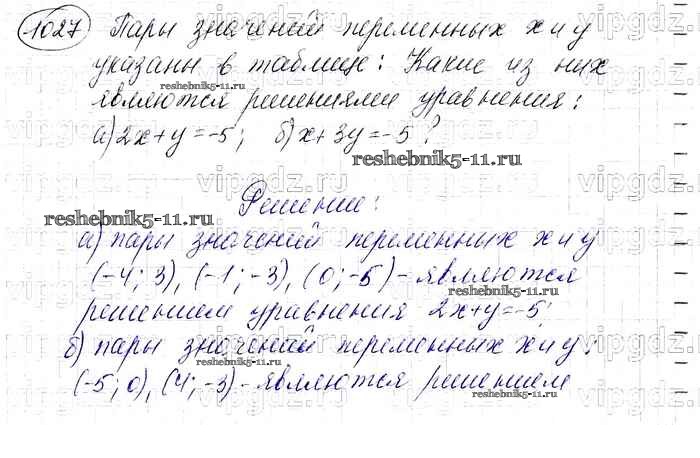 1027 Пары значений переменных х и у
указаны в таблице: Какие из них
являются решениями уравнения:
а) 2х+у=-5; б) х+3у=-5?
Решение:
а) пары значений переменных х и у
(-4; 3), (-1; -3), (0; -5) - являются
решением уравнения 2х+у=-5;
б) пары значений переменных х и у:
(-5; 0), (4; -3) - являются решением
reshebnik5-11.ru
reshebnik5-11.ru
reshebnik5-11.ru
reshebnik5-11.ru
reshebnik5-11.ru
reshebnik5-11.ru